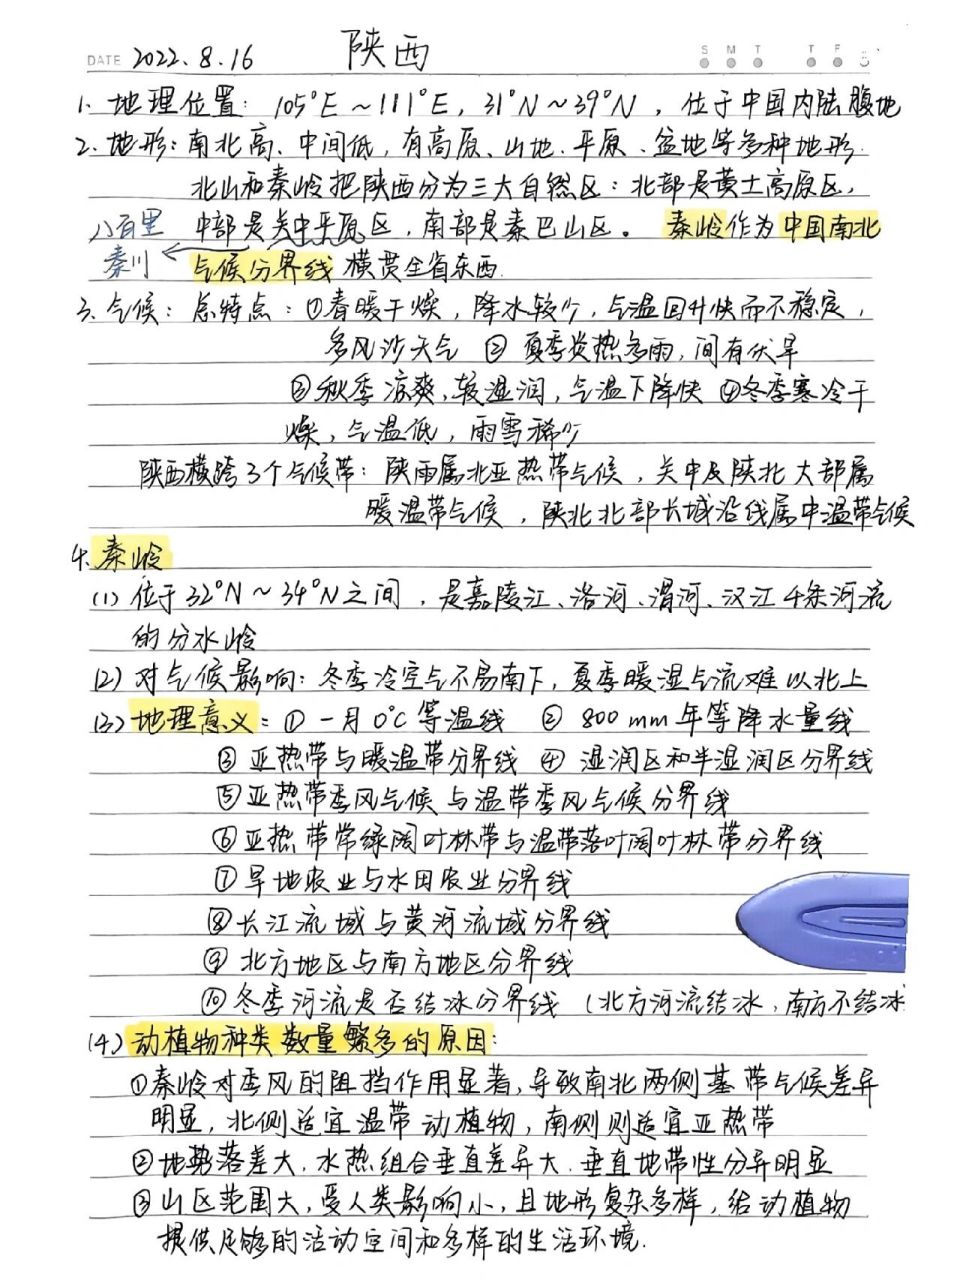 DATE 2022.8.16 陕西 S M T T F
1. 地理位置：105°E～111°E，31°N～39°N，位于中国内陆腹地
2. 地形：南北高、中间低，有高原、山地、平原、盆地等多种地形.
北山和秦岭把陕西分为三大自然区：北部是黄土高原区，
八百里 中部是关中平原区，南部是秦巴山区。 秦岭作为中国南北
秦川 气候分界线 横贯全省东西.
3. 气候：总特点：①春暖干燥，降水较少，气温回升快而不稳定，
多风沙天气 ② 夏季炎热多雨，间有伏旱
③秋季凉爽，较湿润，气温下降快 ④冬季寒冷干
燥，气温低，雨雪稀少
陕西横跨3个气候带：陕南属北亚热带气候，关中及陕北大部属
暖温带气候，陕北北部长城沿线属中温带气候
4. 秦岭
(1) 位于32°N～34°N之间，是嘉陵江、洛河、渭河、汉江4条河流
的分水岭
(2) 对气候影响：冬季冷空气不易南下，夏季暖湿气流难以北上
(3) 地理意义：① 一月0℃等温线 ② 800mm年等降水量线
③ 亚热带与暖温带分界线 ④ 湿润区和半湿润区分界线
⑤亚热带季风气候与温带季风气候分界线
⑥亚热带常绿阔叶林带与温带落叶阔叶林带分界线
⑦旱地农业与水田农业分界线
⑧长江流域与黄河流域分界线
⑨ 北方地区与南方地区分界线
⑩冬季河流是否结冰分界线（北方河流结冰，南方不结冰
(4) 动植物种类数量繁多的原因：
①秦岭对季风的阻挡作用显著，导致南北两侧基带气候差异
明显，北侧适宜温带动植物，南侧则适宜亚热带
②地势落差大，水热组合垂直差异大，垂直地带性分异明显
③山区范围大，受人类影响小，且地形复杂多样，给动植物
提供足够的活动空间和多样的生活环境.